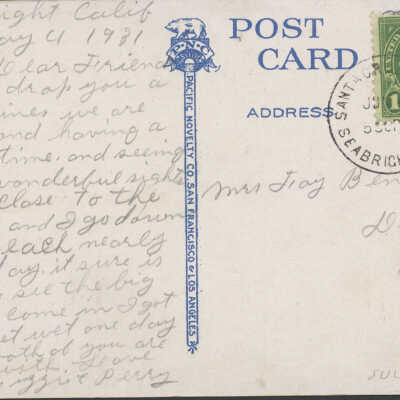 ght Calif
ay 4 1931
Dear Friend
drop you a
ines we are
and having a
time, and seeing
wonderful sights
Close To the
and I go down
each nearly
ay, it sure is
see the big
come in I got
et wet one day
both of you are
Love
izzie Perry
POST
CARD
ADDRESS
P.N.C.
PACIFIC NOVELTY CO. SAN FRANCISCO & LOS ANGELES
SANTA
SEABRIGH
1
Mrs Fay Ben
D
SUL